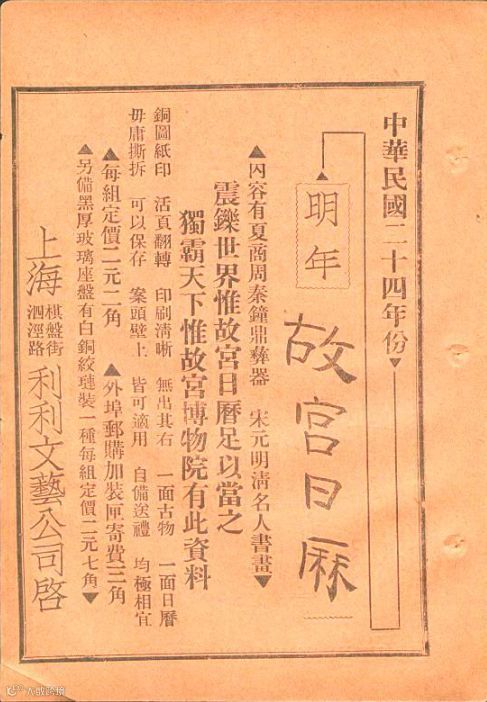 中華民國二十四年份
明年
故宮日厤
▲內容有夏商周秦鐘鼎彝器　宋元明清名人書畫▼
震鑠世界惟故宮日曆足以當之
獨霸天下惟故宮博物院有此資料
銅圖紙印　活頁翻轉　印刷清晰　無出其右　一面古物　一面日曆
毋庸撕拆　可以保存　案頭壁上　皆可適用　自備送禮　均極相宜
▲每組定價二元二角　▲外埠郵購加裝匣寄費三角
▲另備黑厚玻璃座盤有白銅絞璉裝一種每組定價二元七角▼
上海　棋盤街　泗涇路　利利文藝公司啓